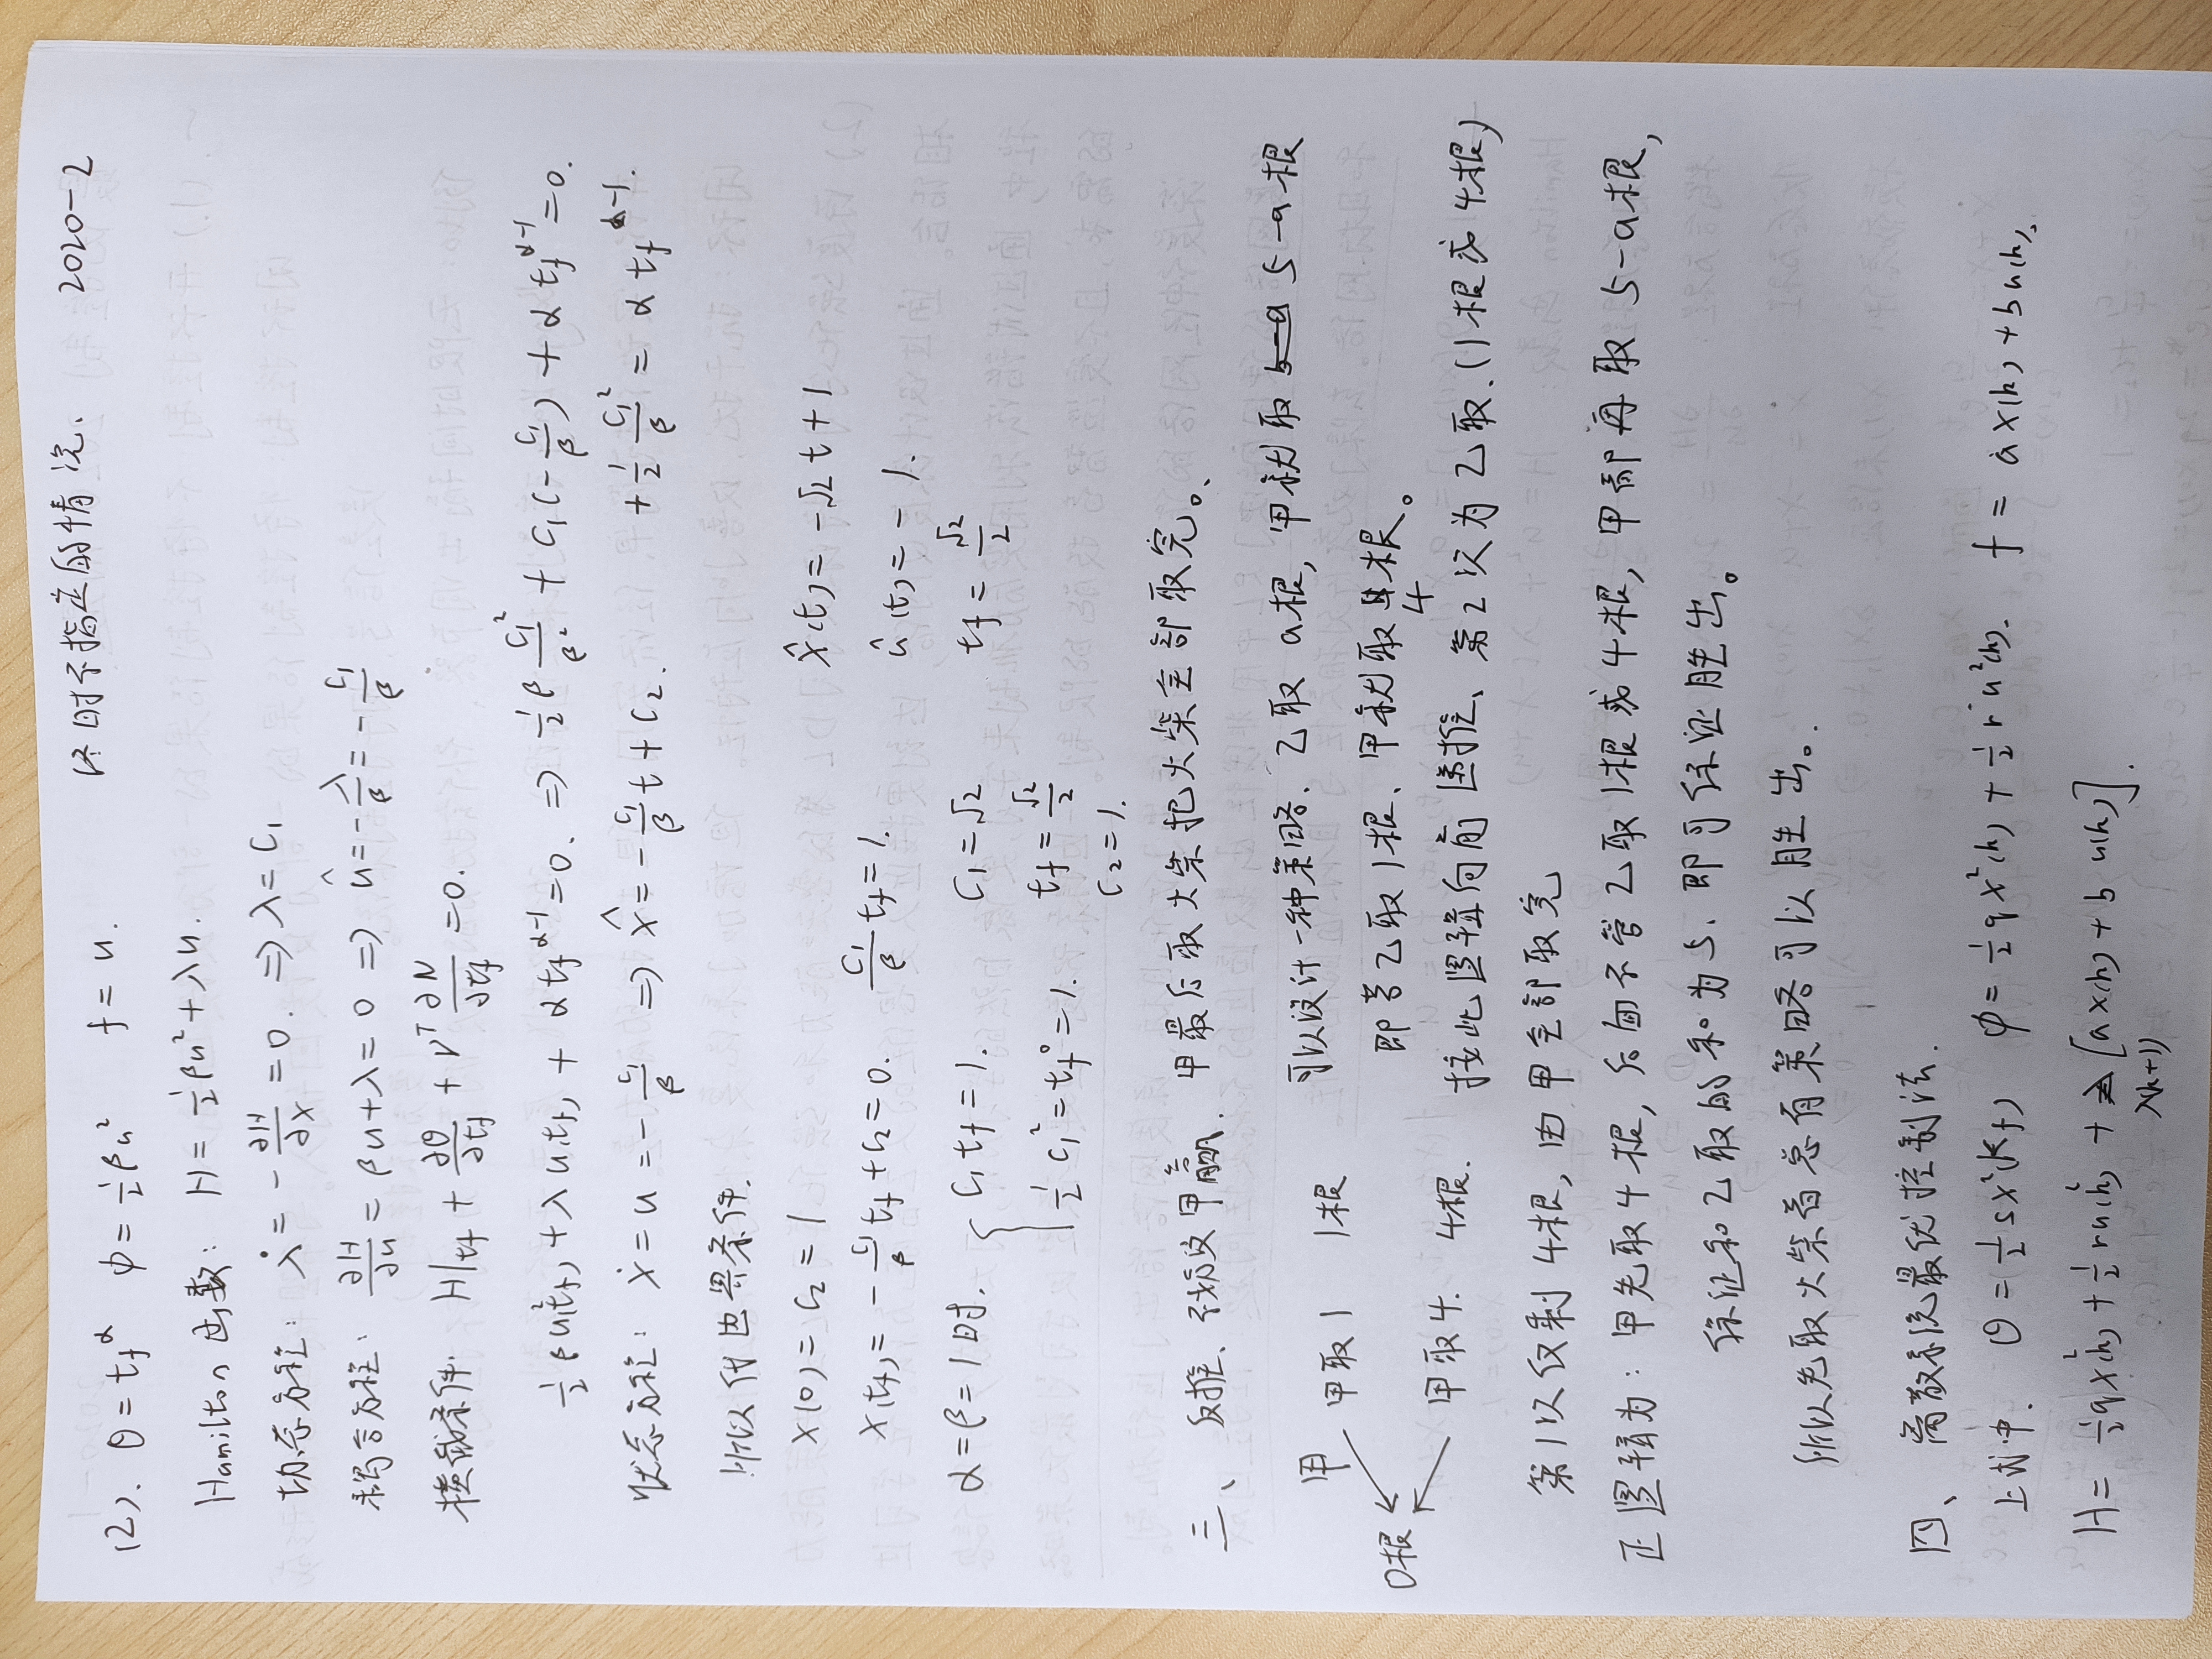 (2). θ = tf^α  φ = ½βu²  f = u.  终时不指定的情况、  2020-2
Hamilton函数: H = ½βu² + λu.
协态方程: λ̇ = -∂H/∂x = 0. ⇒ λ = c₁
耦合方程: ∂H/∂u = βu+λ = 0 ⇒ û = -λ/β = -c₁/β
横截条件. H|tf + ∂θ/∂tf + νᵀ ∂N/∂tf = 0.
½βu²(tf) + λu(tf) + αtf^(α-1) = 0. ⇒ ½β c₁²/β² + c₁(-c₁/β) + αtf^(α-1) = 0.
状态方程: ẋ = u = -c₁/β ⇒ x̂ = -c₁/β t + c₂.  +½ c₁²/β = αtf^(α-1).
所以代边界条件.
x(0) = c₂ = 1
x(tf) = -c₁/β tf + c₂ = 0.  c₁/β tf = 1.  x̂(t) = -√2 t + 1
α = β = 1时. { c₁tf = 1.  c₁ = √2  û(t) = -1.
½c₁² = tf⁰ = 1.  tf = √2/2  tf = √2/2
c₂ = 1.
三、反推、 甲赢. 甲最后取火柴把火柴全部取完。
可以设计一种策略、乙取 a根, 甲就取 5-a根
甲 甲取1 1根 即若乙取1根、甲就取4根。
0根 甲取4. 4根. 按此逻辑向前递推、第2次为乙取.(1根或4根)
第1次仅剩4根, 由甲全部取完
正逻辑为: 甲先取4根, 后面不管乙取1根或4根, 甲都再取5-a根,
保证和乙取的和为5、即可保证胜出。
所以先取火柴者总有策略可以胜出。
四、离散系统最优控制法.
上式中. θ = ½sx²(kf)  φ = ½qx²(k) + ½ru²(k).  f = ax(k) + bu(k).
H = ½qx²(k) + ½ru²(k) + λ(k+1)[ax(k) + bu(k)].